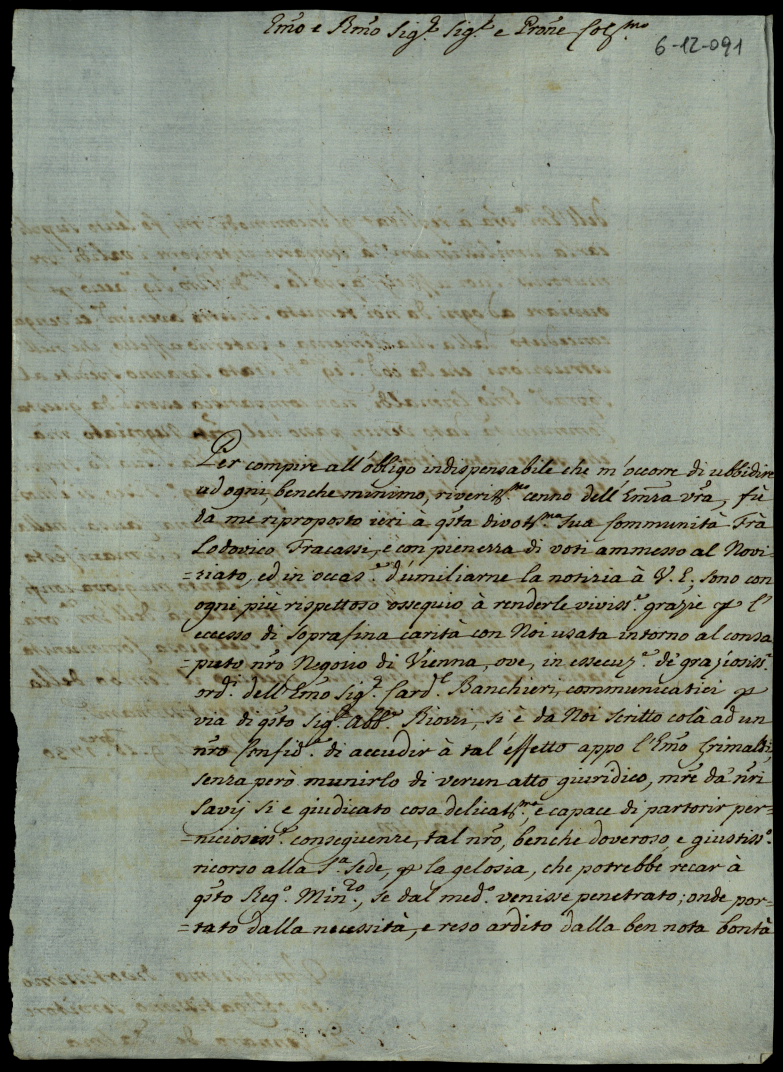 Em̃o e Rm̃o Sig.r Sig.r e Prõne Col.mo
6-12-091
Per compire all'obligo indispensabile che m'occorre di ubbidire
ad ogni, benche minimo, riveritss.mo cenno dell'Em̃za vr̃a, fù
da me riproposto ieri à q̃sta divotss.ma sua Communità Frà
Lodovico Fracassi, e con pienezza di voti ammesso al Novi=
=ziato, ed in occas.e d'umiliarne la notizia à V. E. sono con
ogni più rispettoso ossequio à renderle viviss.e grazie p l'
eccesso di soprafina carità con Noi usata intorno al consa
puto nr̃o Negozio di Vienna, ove, in essecuz.e de' graziosiss.i
ord.i dell'Em̃o Sig.r Card.l Banchieri, communicatici p
via di q̃sto Sig.r Abb.e Riozzi, si è da Noi scritto colà ad un
nr̃o Confid.e di accudir à tal'effetto appo l'Em̃o Grimaldi,
senza però munirlo di verun atto giuridico, mr̃e da nr̃i
Savij si è giudicato cosa delicatss.ma e capace di partorir per=
=niciosess.e conseguenze, tal nr̃o, benche doveroso e giustiss.o
ricorso alla S.ta Sede, p la gelosia, che potrebbe recar à
q̃sto Reg.o Min.ro, se dal med.o venisse penetrato; onde por=
=tato dalla necessità, e reso ardito dalla ben nota bontà